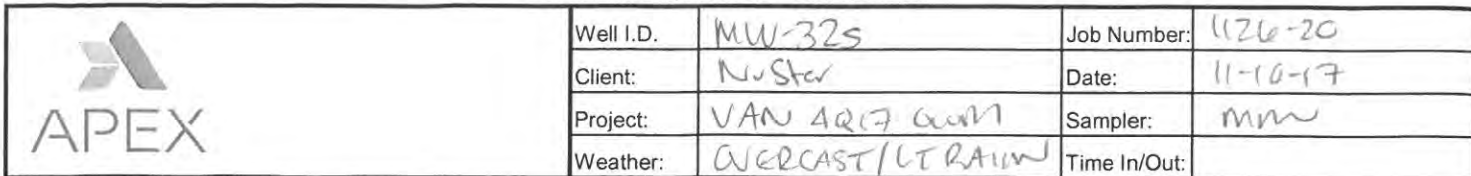 APEX
Well I.D. MW-32s Job Number: 1126-20
Client: NuStar Date: 11-16-17
Project: VAN 4Q17 GWM Sampler: MM
Weather: OVERCAST/LT RAIN Time In/Out: